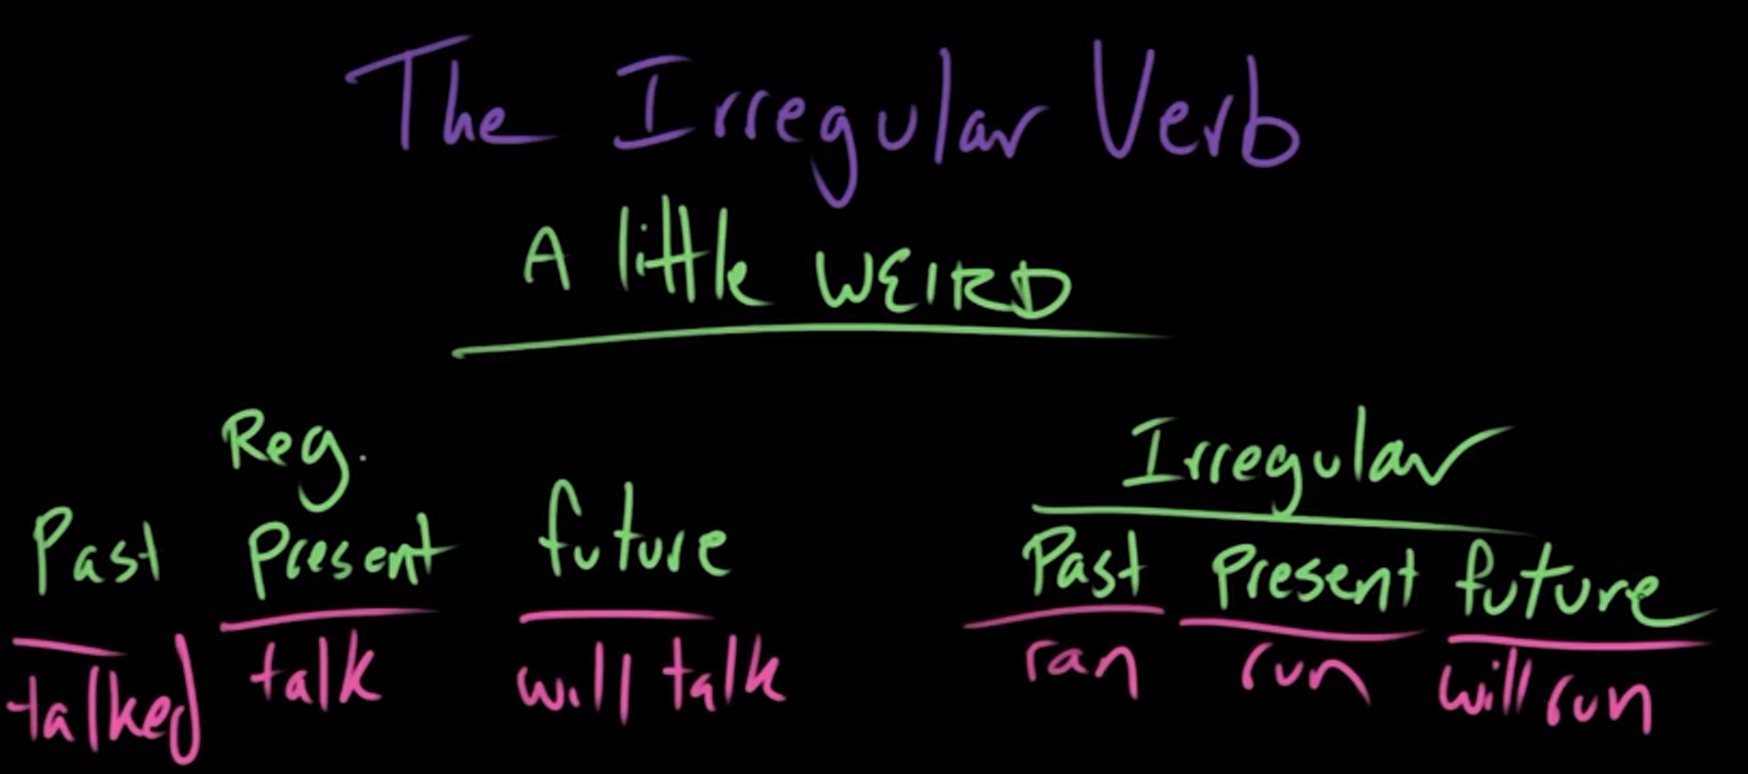 The Irregular Verb
A little WEIRD
Reg.
Past Present future
talked talk will talk
Irregular
Past Present future
ran run will run